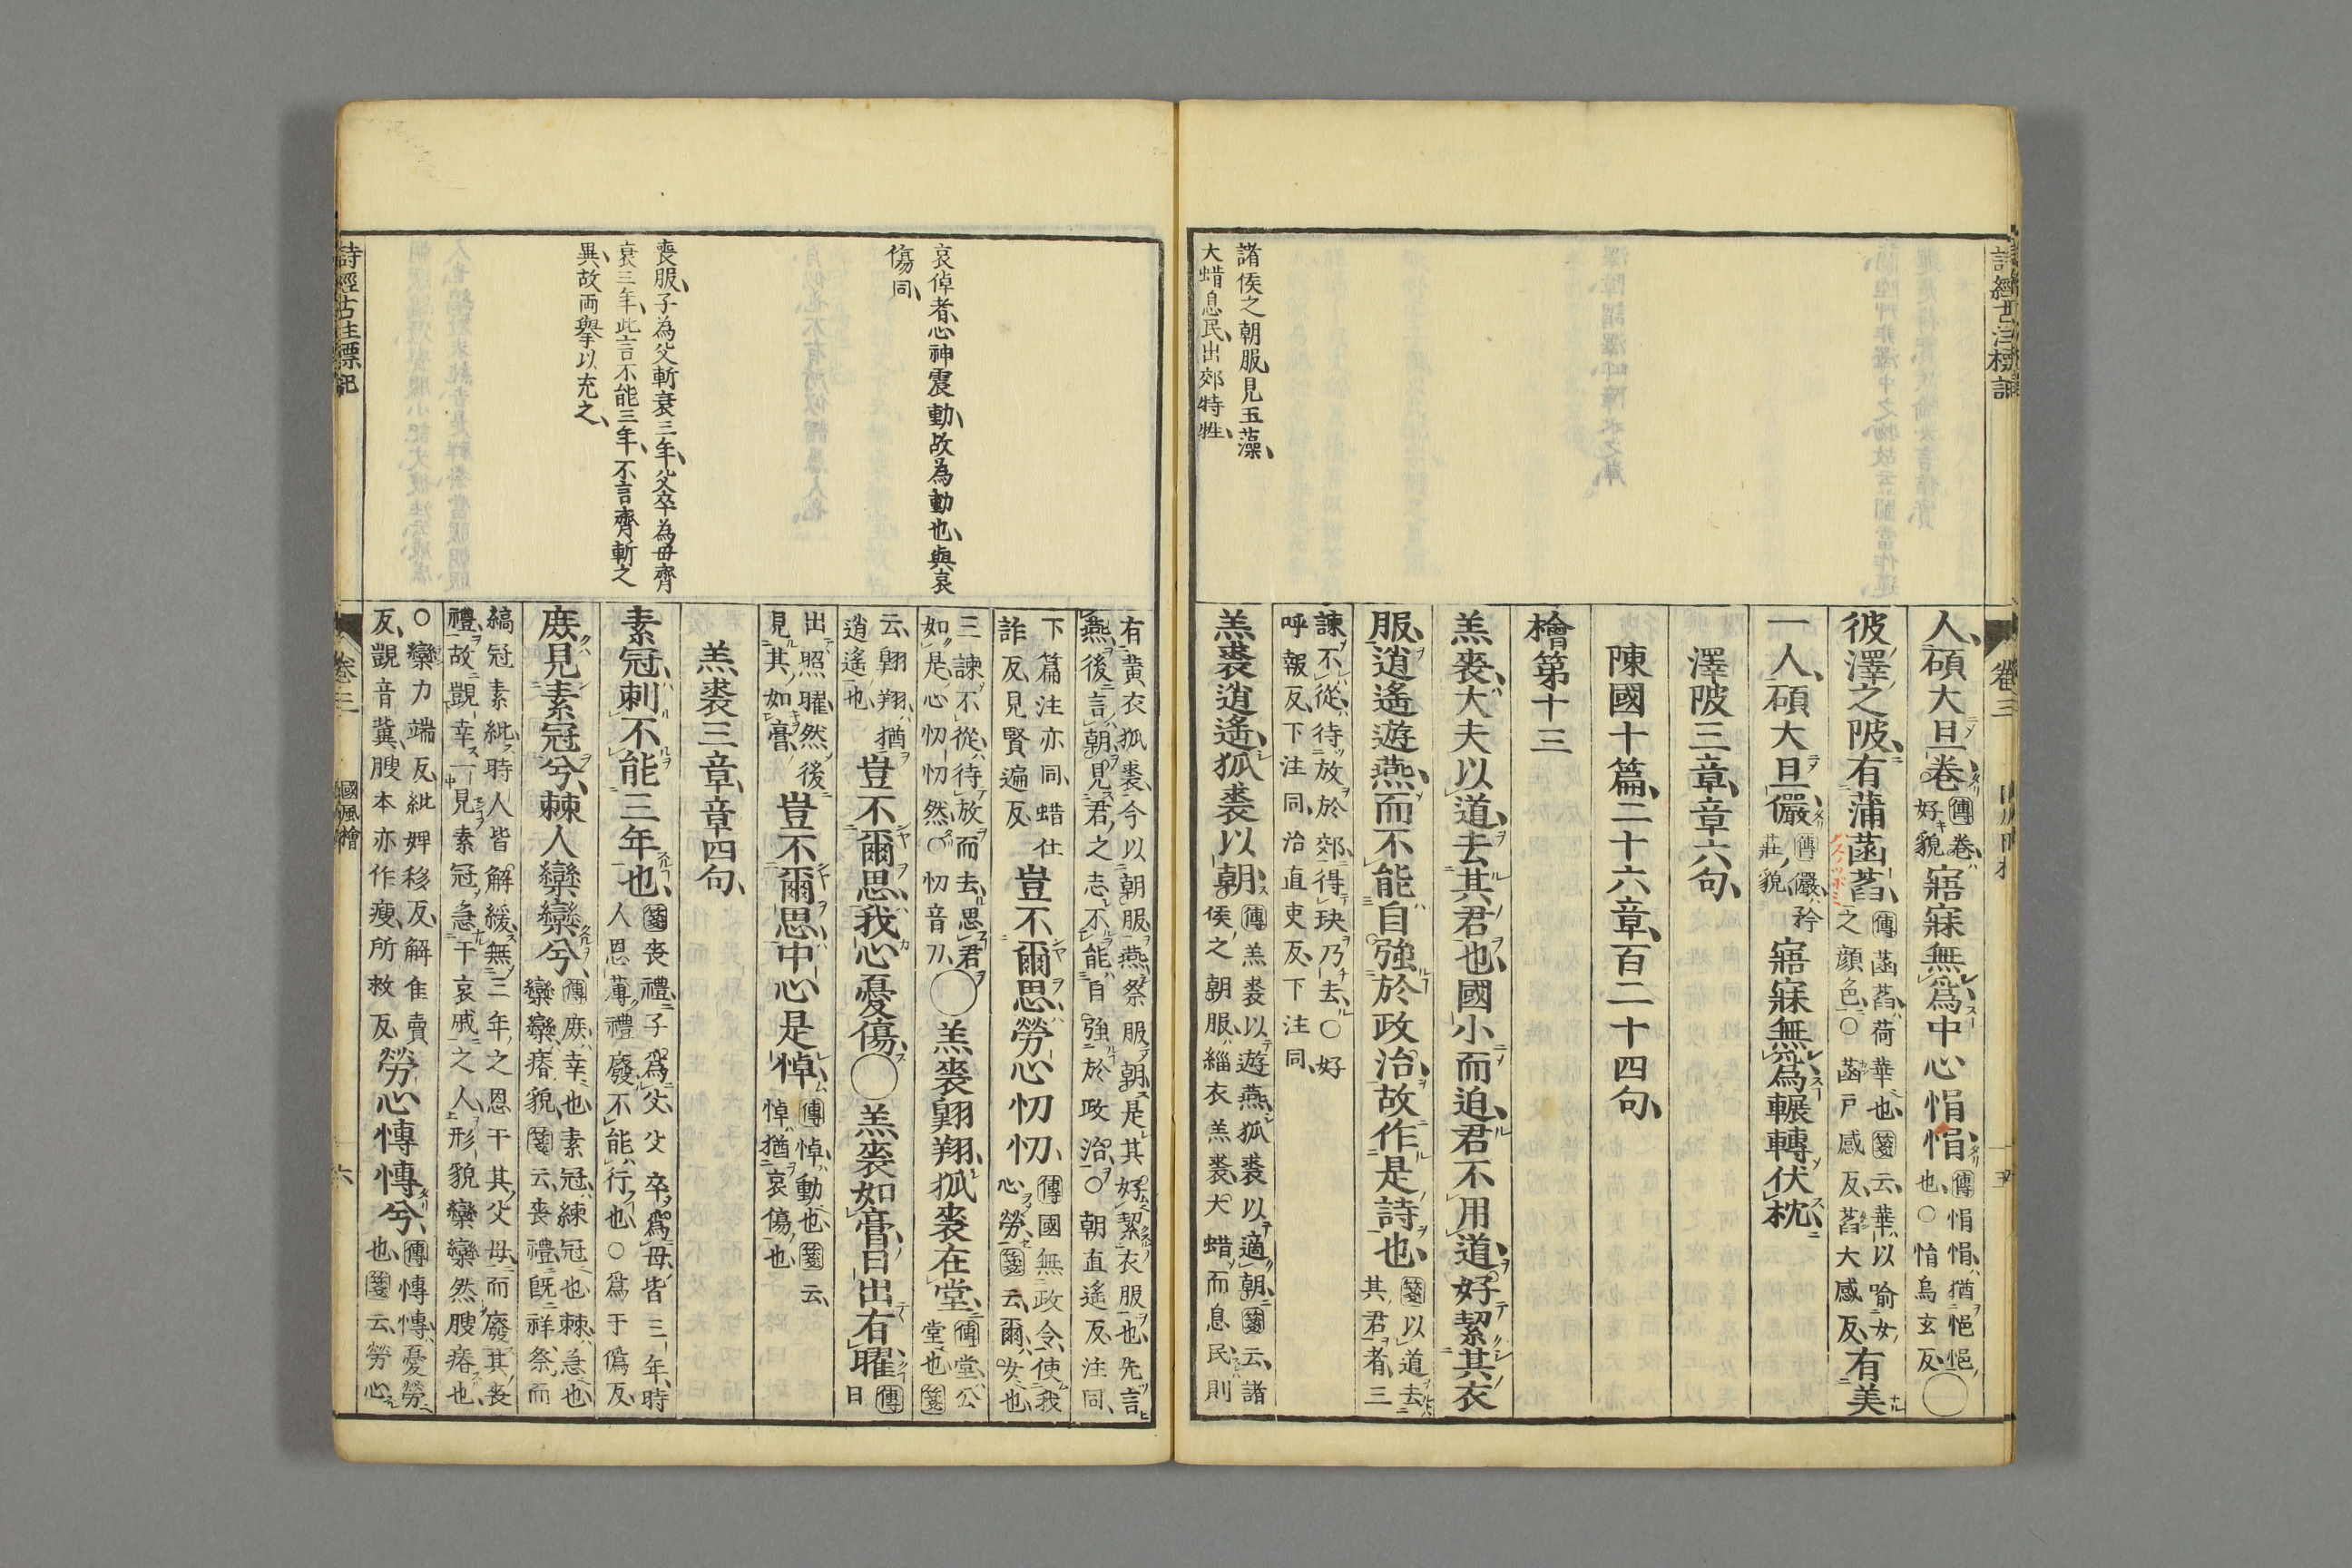 詩經古注標記
卷三
諸侯之朝服、見玉藻、
大蜡息民、出郊特牲、
人、碩大且卷、傳卷、好貌、寤寐無爲、中心悁悁、傳悁悁、猶悒悒也、○悁烏玄反、○
彼澤之陂、有蒲菡萏、傳菡萏、荷華也、箋云、華以喻女之顏色、○菡戸感反、萏大感反、有美
一人、碩大且儼、傳儼、矜莊貌、寤寐無爲、輾轉伏枕、
澤陂三章、章六句、
陳國十篇、二十六章、百二十四句、
檜第十三
羔裘、大夫以道去其君也、國小而迫、君不用道、好絜其衣
服、逍遙遊燕、而不能自強於政治、故作是詩也、箋以道去其君者、三
諫不從、待放於郊、得玦乃去、○好呼報反、下注同、治直吏反、下注同、
羔裘逍遙、狐裘以朝、傳羔裘以遊燕、狐裘以適朝、箋云、諸侯之朝服、緇衣羔裘、大蜡而息民、則
哀悼者、心神震動、故為動也、與哀
傷同、
喪服、子為父斬衰三年、父卒為母齊
衰三年、此言不能三年、不言齊斬之
異、故両擧以充之、
有黃衣狐裘、今以朝服燕、祭服朝、是其好絜衣服也、先言燕、後言朝、見君之志、不能自強於政治、○朝直遙反、注同、
下篇注亦同、蜡仕詐反、見賢遍反、豈不爾思、勞心忉忉、傳國無政令、使我心勞、箋云、爾、女也、
三諫不從、待放而去、思君如是、心忉忉然、○忉音刀、○羔裘翺翔、狐裘在堂、傳堂、公堂也、箋
云、翺翔、猶逍遙也、豈不爾思、我心憂傷、○羔裘如膏、日出有曜、傳日
出照曜、然後見其如膏、豈不爾思、中心是悼、傳悼、動也、箋云、悼、猶哀傷也、
羔裘三章、章四句、
素冠、刺不能三年也、箋喪禮、子爲父、父卒爲母、皆三年、時人恩薄禮廢、不能行也、○爲于僞反、
庶見素冠兮、棘人欒欒兮、傳庶、幸也、素冠、練冠也、棘、急也、欒欒、瘠貌、箋云、喪禮、旣祥祭、而
縞冠素紕、時人皆解緩、無三年之恩于其父母、而廢其喪禮、故覬幸一見素冠、急于哀戚之人、形貌欒欒然膄瘠也、
○欒力端反、紕婢移反、解隹賣反、覬音冀、膄本亦作瘦、所救反、勞心慱慱兮、傳慱慱、憂勞也、箋云、勞心
詩經古注標記
卷三
國風檜
六